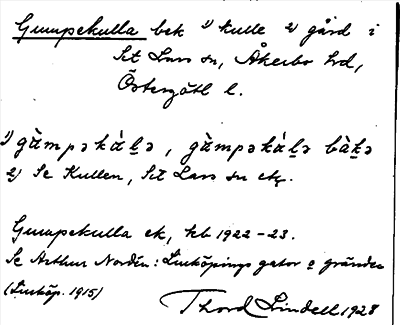 Gumpekulla bek 1) kulle 2) gård i
Sct Lars sn, Åkerbo hd,
Östergötl l.
1) gàmpəkálə, gàmpəkálə bàkə
2) Se Kullen, Sct Lars sn etc.
Gumpekulla ek, kb 1922-23.
Se Arthur Nordén: Linköpings gator o gränder
(Linköp. 1915)
Thord Lindell 1928